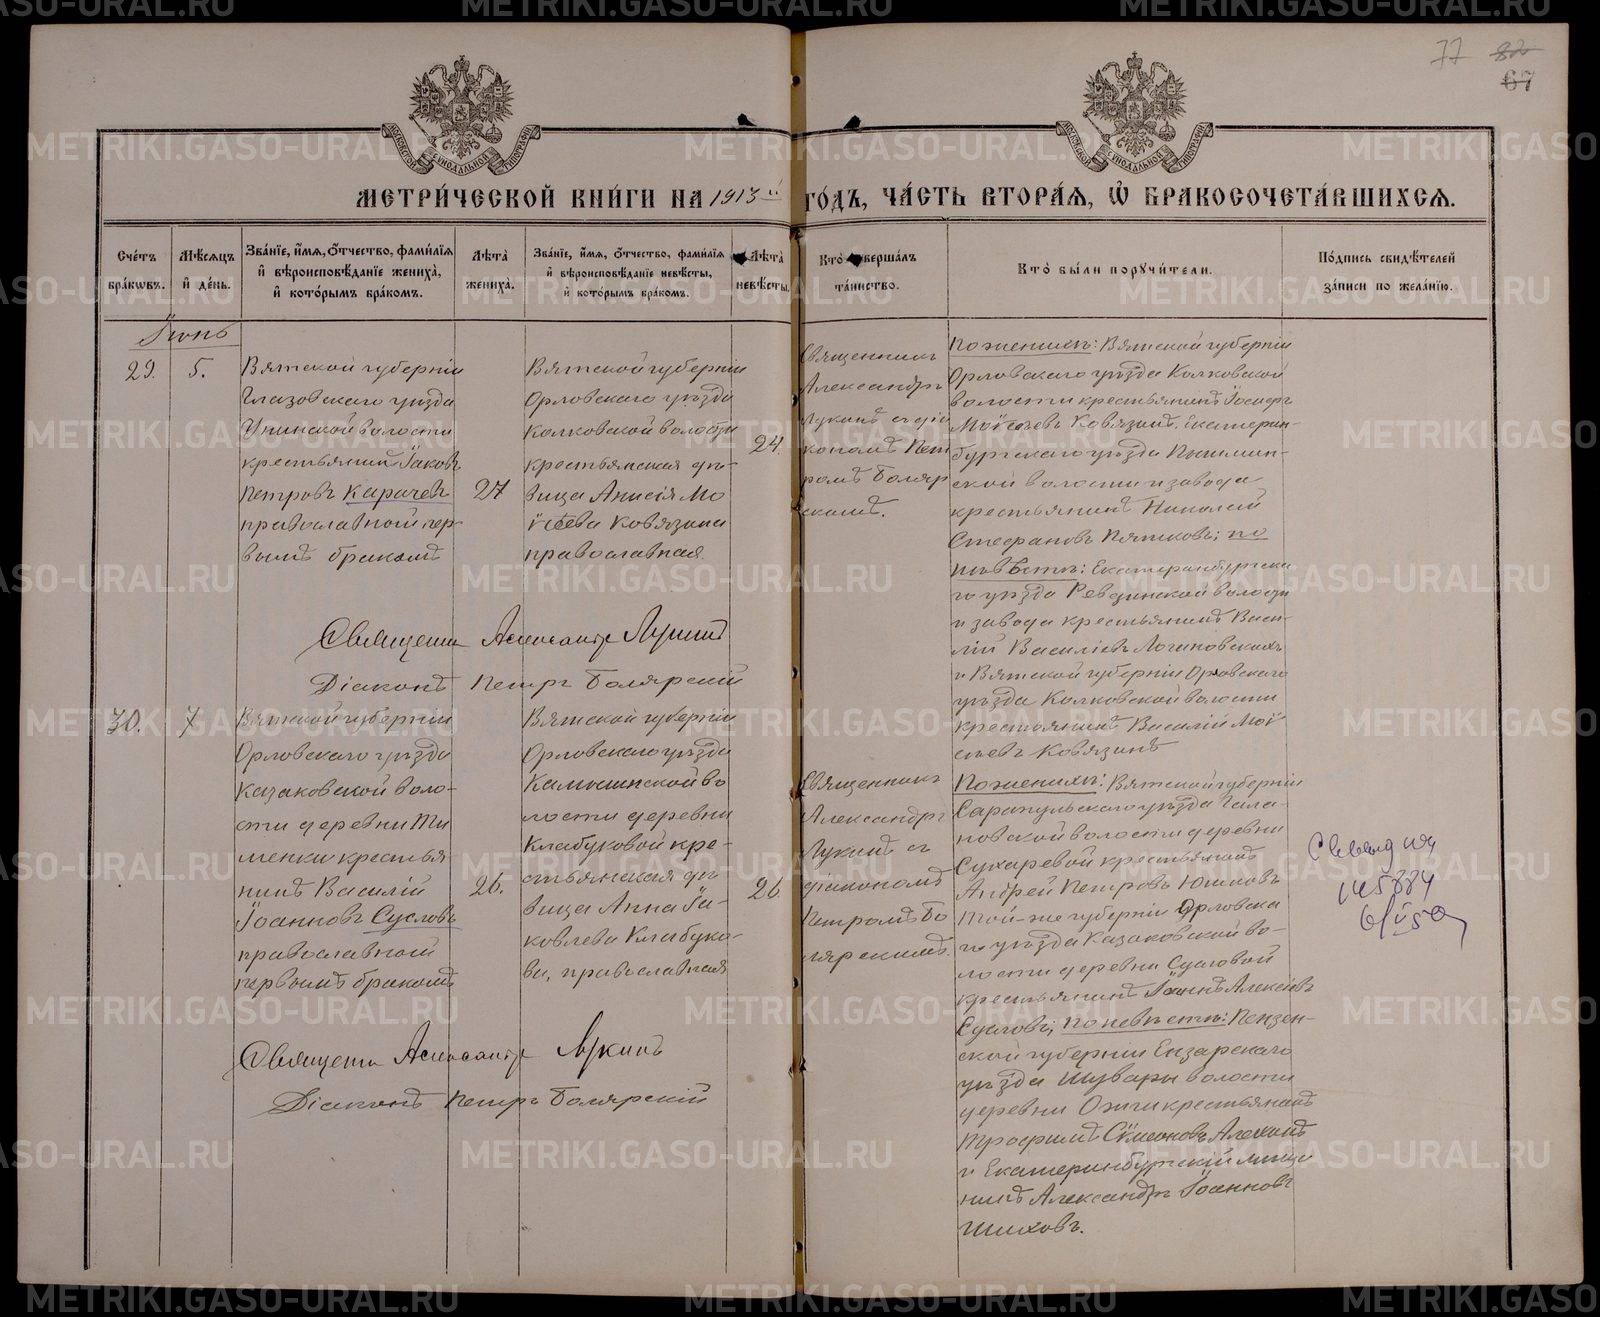 77 82
67
МЕТРИЧЕСКОЙ КНИГИ НА 1913й ГОДЪ, ЧАСТЬ ВТОРАЯ, Ѡ БРАКОСОЧЕТАВШИХСЯ.
Счетъ браковъ.
Мѣсяцъ и день.
Званіе, имя, отчество, фамилія и вѣроисповѣданіе жениха, и которымъ бракомъ.
Лѣта жениха.
Званіе, имя, отчество, фамилія и вѣроисповѣданіе невѣсты, и которымъ бракомъ.
Лѣта невѣсты.
Кто совершалъ таинство.
Кто были поручители.
Подпись свидѣтелей записи по желанію.
Іюнь
29.
5.
Вятской губерніи
Глазовскаго уѣзда
Унинской волости
крестьянинъ Іаковъ
Петровъ Карачевъ
православный пер-
вымъ бракомъ
27
Вятской губерніи
Орловскаго уѣзда
Колковской волости
крестьянская дѣ-
вица Анисія Мо
ѵсеева Ковязина
православная
24.
Священникъ
Александръ
Лукинъ съ діа
кономъ Пет
ромъ Боляр
скимъ.
По женихѣ: Вятской губерніи
Орловскаго уѣзда Колковской
волости крестьянинъ Іосифъ
Моѵсеевъ Ковязинъ, Екатерин-
бургскаго уѣзда Пышмин-
ской волости и завода
крестьянинъ Николай
Стефановъ Пятковъ; по
невѣстѣ: Екатеринбургска
го уѣзда Ревдинской волости
и завода крестьянинъ Васи-
лій Василіевъ Логиновскихъ
и Вятской губерніи Орловскаго
уѣзда Колковской волости
крестьянинъ Василій Моѵ
сеевъ Ковязинъ
Священникъ Александръ Лукинъ
Діаконъ Петръ Болярскій
30.
7
Вятской губерніи
Орловскаго уѣзда
Казаковской воло-
сти деревни Ти
менки крестья
нинъ Василій
Іоанновъ Сусловъ
православный
первымъ бракомъ
26.
Вятской губерніи
Орловскаго уѣзда
Камышинской во
лости деревни
Клабуковой кре-
стьянская дѣ
вица Анна Іа-
ковлева Клабуко-
ва, православная
26
Священникъ
Александръ
Лукинъ съ
діакономъ
Петромъ Бо
лярскимъ.
По женихѣ: Вятской губерніи
Сарапульскаго уѣзда Гала-
новской волости деревни
Сухаревой крестьянинъ
Андрей Петровъ Юшковъ
той-же губерніи Орловска
го уѣзда Казаковской во-
лости деревни Сусловой
крестьянинъ Іоаннъ Алексіевъ
Сусловъ; по невѣстѣ: Пензен-
ской губерніи Инзарскаго
уѣзда Шувары волости
деревни Ожги крестьянинъ
Трофимъ Сѵмеоновъ Алехинъ
и Екатеринбургскій мѣща
нинъ Александръ Іоанновъ
Шиховъ.
145884
Священникъ Александръ Лукинъ
Діаконъ Петръ Болярскій
METRIKI.GASO-URAL.RU